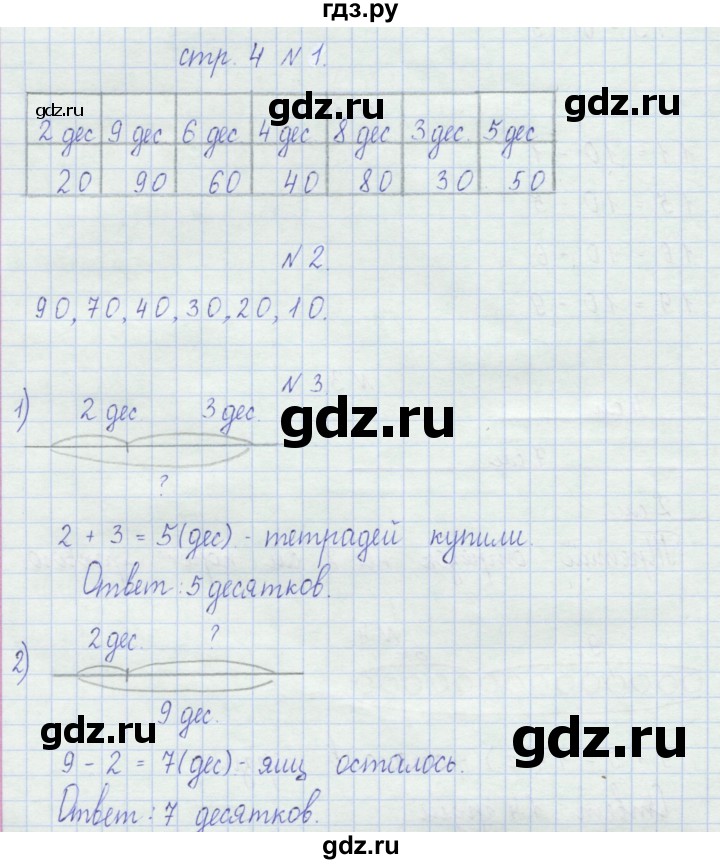 гдз.ру
стр. 4 №1.
gdz.ru
gdz.ru
gdz.ru
2 дес 9 дес 6 дес 4 дес 8 дес 3 дес. 5 дес
20 90 60 40 80 30 50
№2.
90, 70, 40, 30, 20, 10.
№3
1) 2 дес 3 дес.
gdz.ru
?
2 + 3 = 5(дес) - тетрадей купили.
Ответ: 5 десятков.
2) 2 дес. ?
9 дес.
gdz.ru
gdz.ru
9 - 2 = 7(дес) - яиц осталось.
Ответ: 7 десятков.
gdz.ru